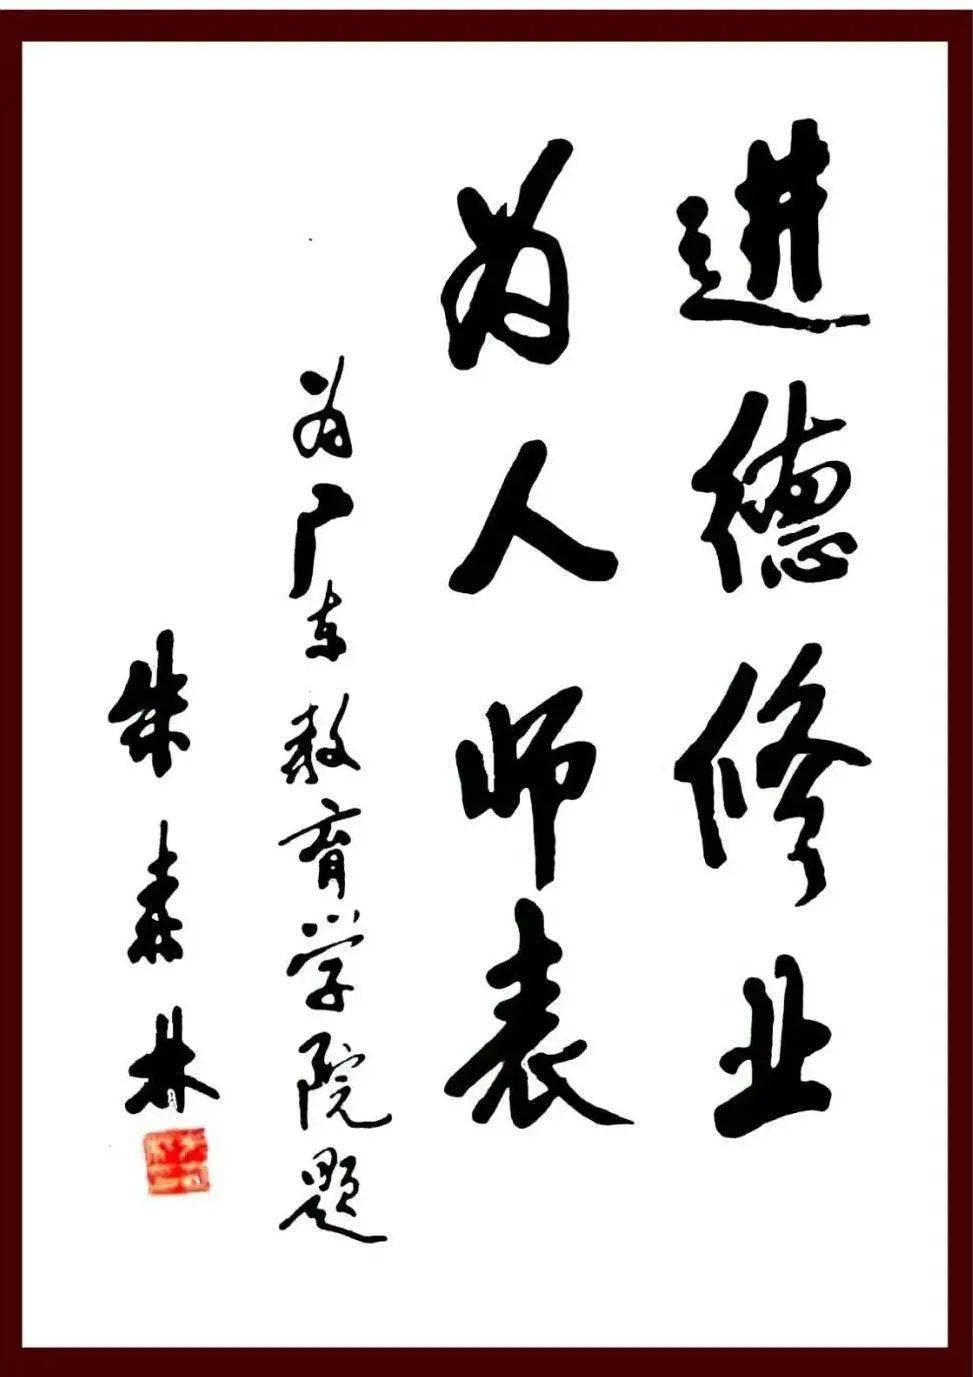 进德修业
为人师表
为广东教育学院题
朱森林